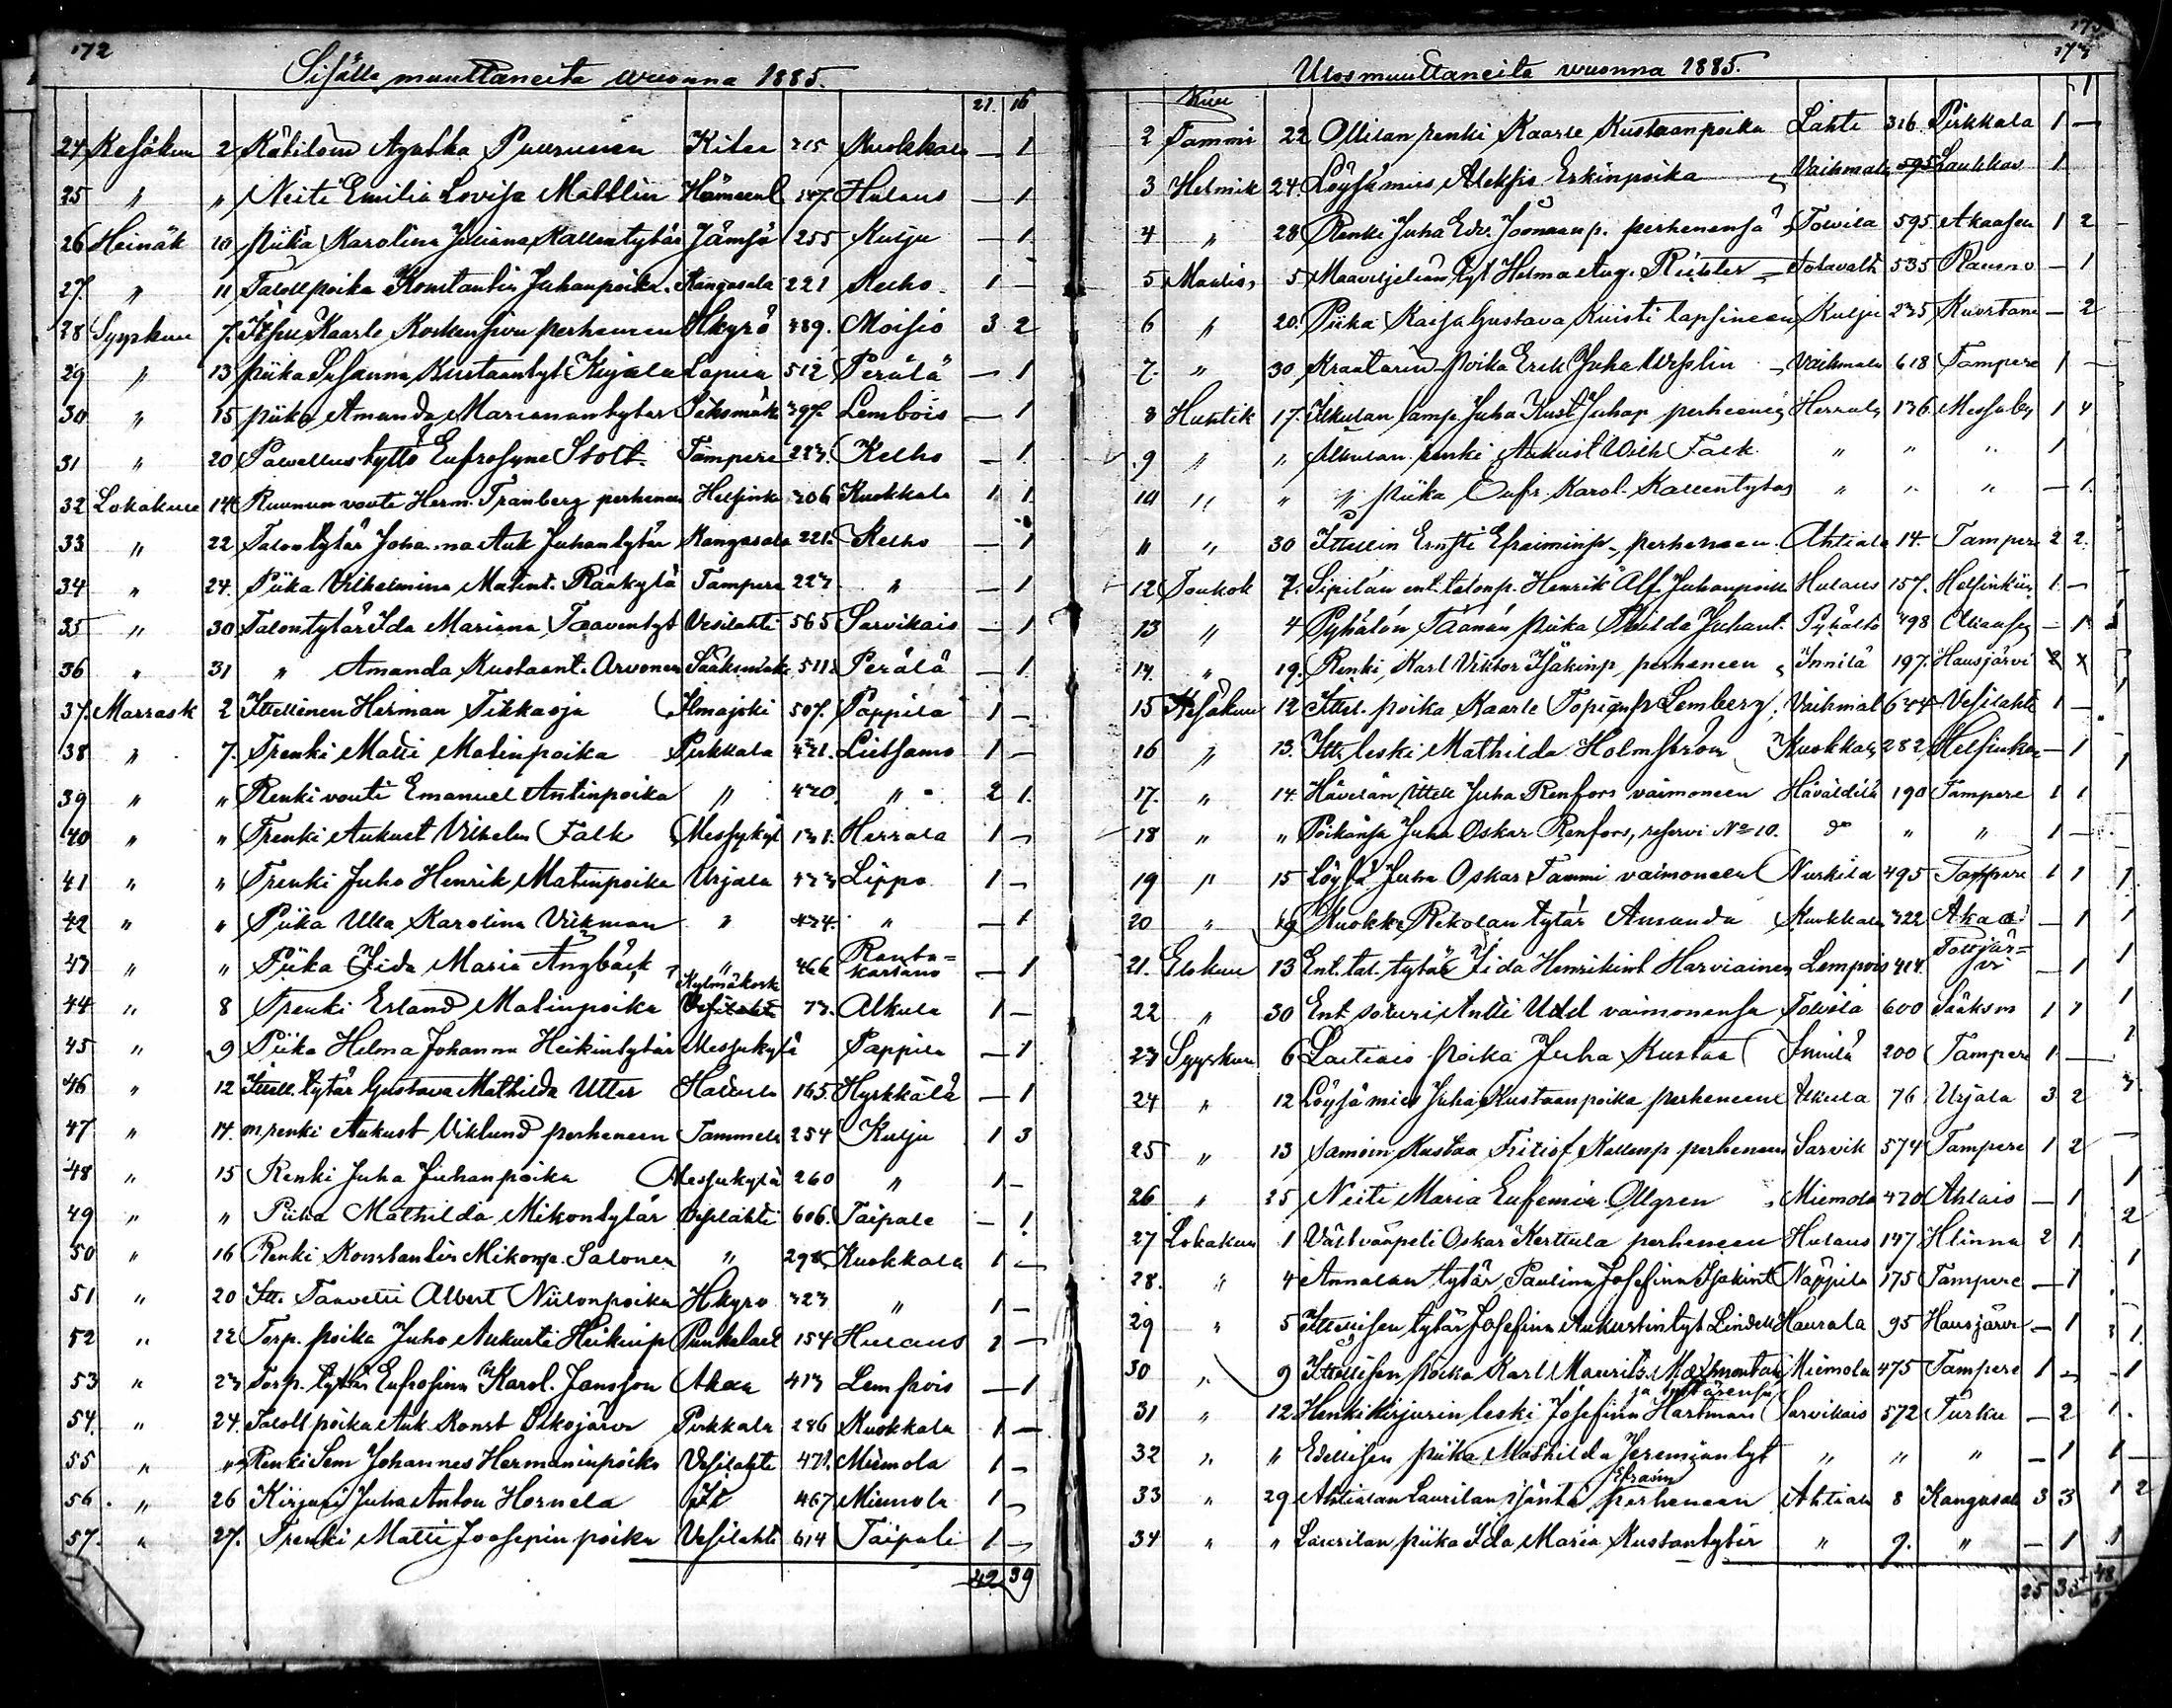 172
Sisälle muuttaneita vuonna 1885.
21. 16
24 Kesäkuu 2 Kätilön Agatha Puurunen Kitee 315 Kuokkala — 1
25 " " Neiti Emilia Lovisa Malllin Hämeenl 147. Hulaus — 1
26 Heinäk 10 Piika Karolina Juliana Kallentytär Jämsä 255 Kulju — 1
27. " 11 Talollpoika Konstantin Juhanpoika. Kangasala 221 Kelho 1 —
28 Syyskuu 7. Itsell Kaarle Koskensivu perheneen Hkyrö 489. Moisio 3 2
29 " 13 piika Susanna Kustaantyt Kujala Lapua 512 Perälä — 1
30 " 15 piika Amanda Marianantytar Sääksmäk 397. Lembois — 1
31 " 20 Palvellustyttö Eufrosyne Stolt. Tampere 223. Kelho — 1
32 Lokakuu 14 Ruunun vouti Herm. Tranberg perheneen Helsinki 306 Kuokkala 1 1
33 " 22 Talontytär Johanna Auk Juhantytär Kangasala 221. Kelho — 1
34 " 24. Piika Vilhelmina Matint. Rääkylä Tampere 223 " — 1
35 " 30 Talontytär Ida Mariana Taaventyt Vesilahti 565 Sarvikais — 1
36 " 31 " Amanda Kustaant. Arvonen Sääksmäk 511. Perälä — 1
37. Marrask 2 Ittellinen Herman Tikkaoja Ilmajoki 507. Pappila 1 —
38 " 7. Trenki Matti Matinpoika Pirkkala 421. Lietsamo 1 —
39 " " Renkivouti Emanuel Antinpoika " 420. " 2 1.
40 " " Trenki Aukust Vilhelm Falk Messykyl 131. Herrala 1 —
41 " " Trenki Juho Henrik Matinpoika Urjala 433 Lippo 1 —
42 " " Piika Ulla Karolina Vikman " 434. " — 1
43 " " Piika Iida Maria Angbäck " 466 Ranta=kartano — 1
44 " 8 Trenki Erland Malinpoika Kylmäkosk Vesilahti 73. Alkula 1 —
45 " 9 Piika Helma Johanna Heikintytär Messukylä Pappila — 1
46 " 12 Ittell. tytär Gustava Mathilda Utter Hattula 165. Hyrkkälä — 1
47 " 14. m renki Aukust Viklund perheneen Tammela 254 Kulju 1 3
48 " 15 Renki Juha Juhanpoika Messukylä 260 " 1 —
49 " " Piika Mathilda Mikontytär Vesilahti 606. Taipale — 1
50 " 16 Renki Konstantin Mikonp. Salonen " 298 Kuokkala 1 —
51 " 20 Itt. Taavetti Albert Niilonpoika Hkyro 323 " 1 —
52 " 22 Torp. poika Juho Aukusti Heikinp Punkalait 154 Hulaus 1 —
53 " 23 Torp. tytär Eufrosina Karol. Jansson Akaa 413 Lempois — 1
54. " 24. Talollpoika Auk Konst Olkojärvi Pirkkala 286 Kuokkala 1 —
55 " " Renki Sem Johannes Hermaninpoika Vesilahti 471. Miemola 1 —
56. " 26 Kirjuri Juha Anton Hornela 467 Miemola 1 —
57. " 27. Trenki Matti Joosepinpoika Vesilahti 614 Taipale 1 —
42 39
173
Ulosmuuttaneita vuonna 1885.
Kuu
2 Tammi 22 Ollilan renki Kaarle Kustaanpoika Lahti 316. Pirkkala 1 —
3 Helmik 24. Löysämies Aleksis Erkinpoika Vaihmala 595 Laukkas 1
4 " 28 Renki Juha Edv. Joonaanp. perhenensä Toivila 595 Akaasen 1 2
5 Maalis, 5 Maaviljeliän tyt Helma Aug. Rützler Sotavalt 535 Rauma — 1
6 " 20. Piika Kaisa Gustava Kuisti lapsineen Kulju 235 Kuortane — 2
7. " 30. Kraatarin poika Erik Juha Verslin Vaihmala 618 Tampere 1 —
8 Huhtik 17. Alkulan lamp. Juha Kust Juhap perheenes Herrala 136 Messuby 1 4
9 " " Alkulan renki Aukust Wilh Falk. " " " 1
10 " " " piika Eufr. Karol. Kallentytär " " " — 1
11 " 30 Ittellin Ernsti Efraiminp. perheneen Ahtiala 14. Tampere 2 2.
12 Toukok 7. Sipilän ent. talonp. Henrik Alf. Juhanpoika Hulaus 157. Helsinkiin 1 —
13 " 4 Pyhälön Täänän piika Thilda Juhant. Pyhältö 498 Akaasen — 1
14. " 19. Renki Karl Viktor Isakinp perheneen Innilä 197. Hausjärvi 2 x
15 Kesäkuu 12 Ittel. poika Kaarle Topiasp Lemberg Vaihmal 634 Vesilahti 1 —
16 " 13. Itt. leski Mathilda Holmström Kuokkala 282 Helsinkiin — 1
17. " 14. Hävelän ittell Juha Renfors vaimoneen Häväldilä 190 Tampere 1 1
18 " " Poikansa Juha Oskar Renfors, reservi No 10. do " " 1 —
19 " 15 Löysä Juha Oskar Tammi vaimoneen Nurkila 495 Tampere 1 1
20 " 19 Kuokka Rekolan tytär Amanda Kuokkala 322 Akaa — 1
21. Elokuu 13 Ent. tal. tytär Iida Henrikint Harviainen Lempois 414. Pottjär=vi — 1
22 " 30 Ent. soturi Antti Udd vaimonensa Toivila 600 Sääksm 1 1
23 Syyskuu 6 Laitiais poika Juha Kustaa Innilä 200 Tampere 1 —
24 " 12 Löysämies Juha Kustaanpoika perheneen Alkula 76 Urjala 3 2
25 " 13 Samoin Kustaa Fritiof Kallenp perheneen Sarvik 574 Tampere 1 2
26 " 25 Neiti Maria Eufemia Ollgren Miemola 470 Ahlais — 1
27 Lokakuu 1 Vältvääpeli Oskar Kerttula perheneen Hulaus 147 Hlinna 2 1.
28. " 4 Annalan tytär, Paulina Josefina Isakint Näppilä 175 Tampere — 1
29 " 5 Ittellisen tytär Josefina Aukustintyt Lindell Haurala 95 Hausjärv — 1
30 " 9 Ittellisen poika Karl Maurits Maxmontan Miemola 475 Tampere 1 —
31 " 12 Henkikirjurin leski Josefina Hartman ja tyttärensä Sarvikais 572 Turku — 2
32 " " Edellisen piika Mathilda Jeremiantyt " " " — 1
33 " 29 Ahtialan Laurilan isäntä Efraim perheneen Ahtiala 8 Kangasal 3 3
34 " " Laurilan piika Ida Maria Kustantytär " 9. " — 1
25 35 48